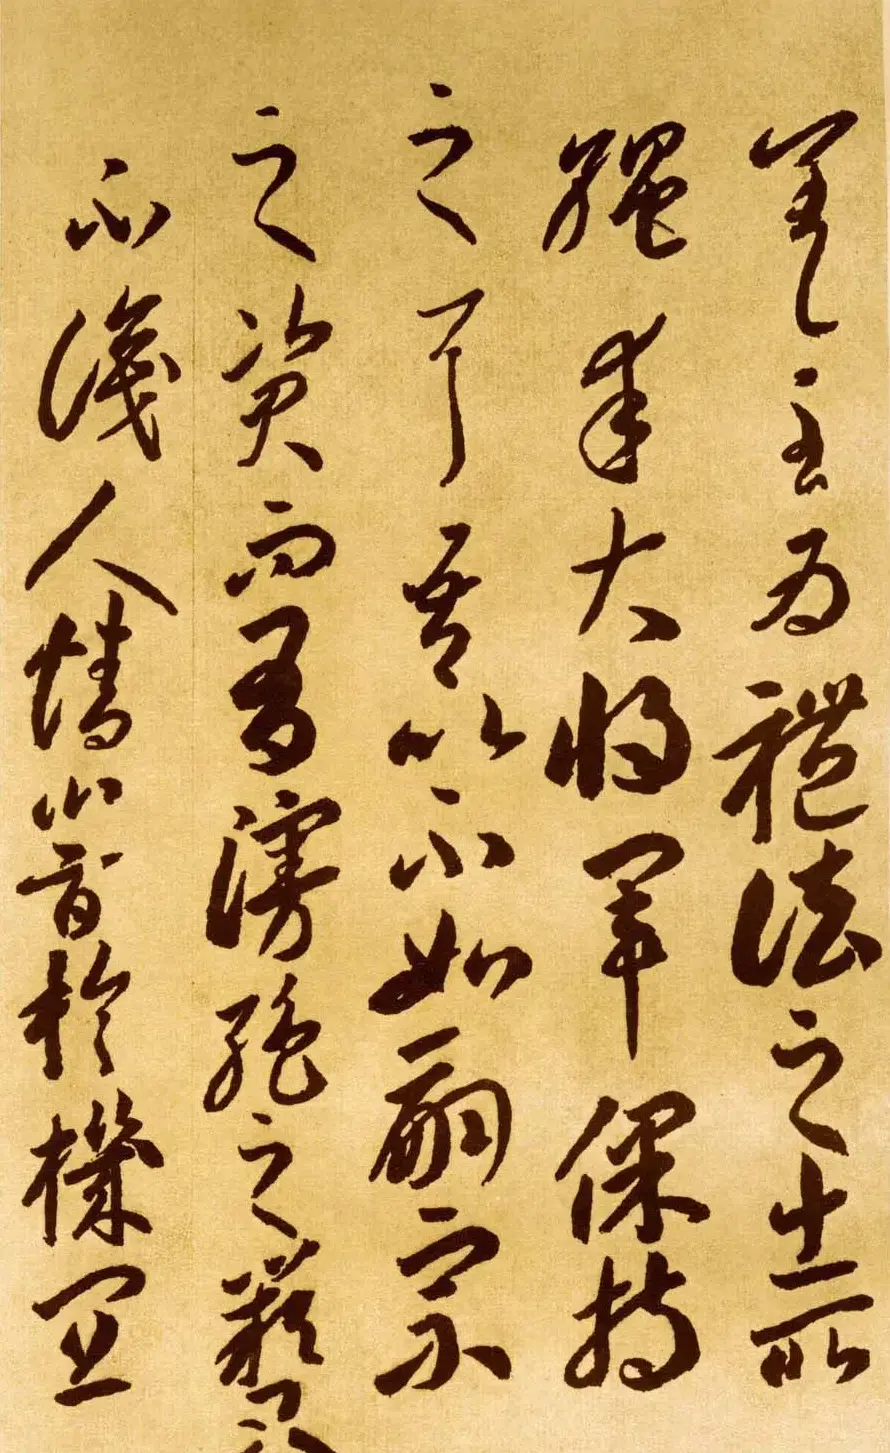 差至为禮法之士所
繩幸大將軍保持
之耳吾以不如嗣宗
之資而有慢弛之闕又
不識人情闇於機宜